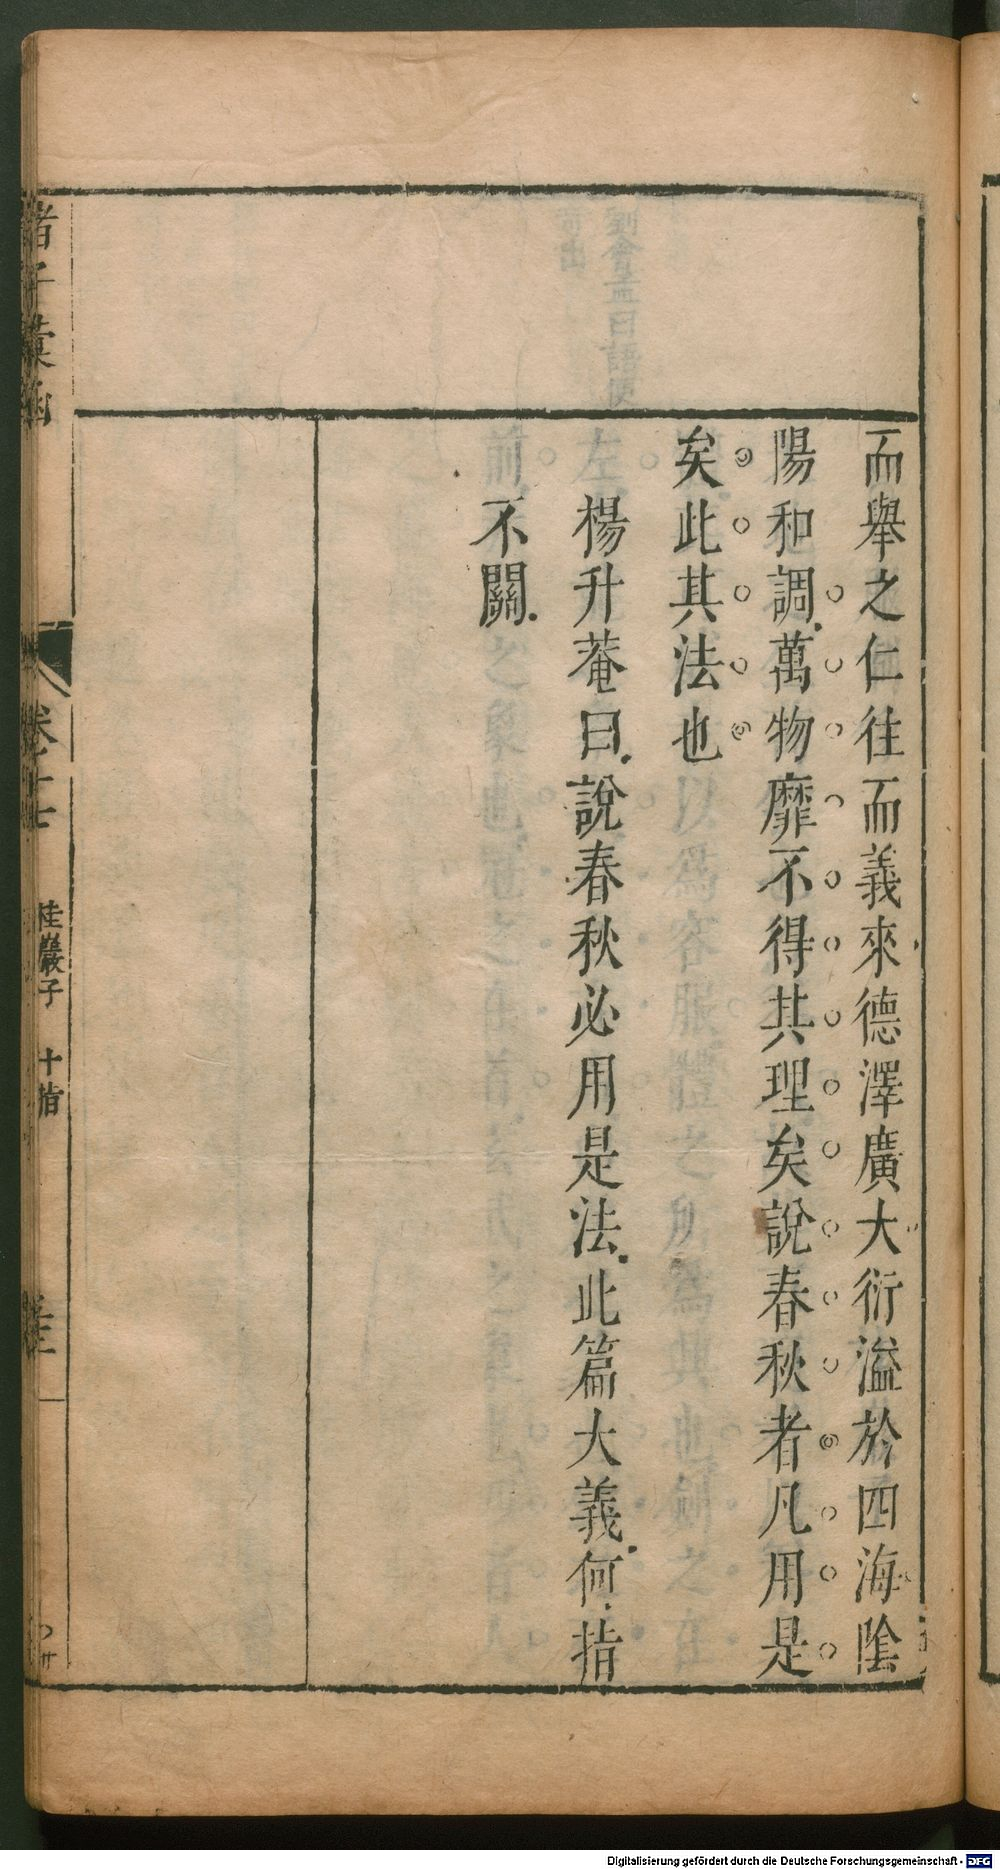 而舉之仁往而義來德澤廣大衍溢於四海陰
陽和調萬物靡不得其理矣說春秋者凡用是
矣此其法也
楊升菴曰說春秋必用是法此篇大義何指
不關
諸子彙函
卷十七
桂巖子 十指
Digitalisierung gefördert durch die Deutsche Forschungsgemeinschaft - DFG